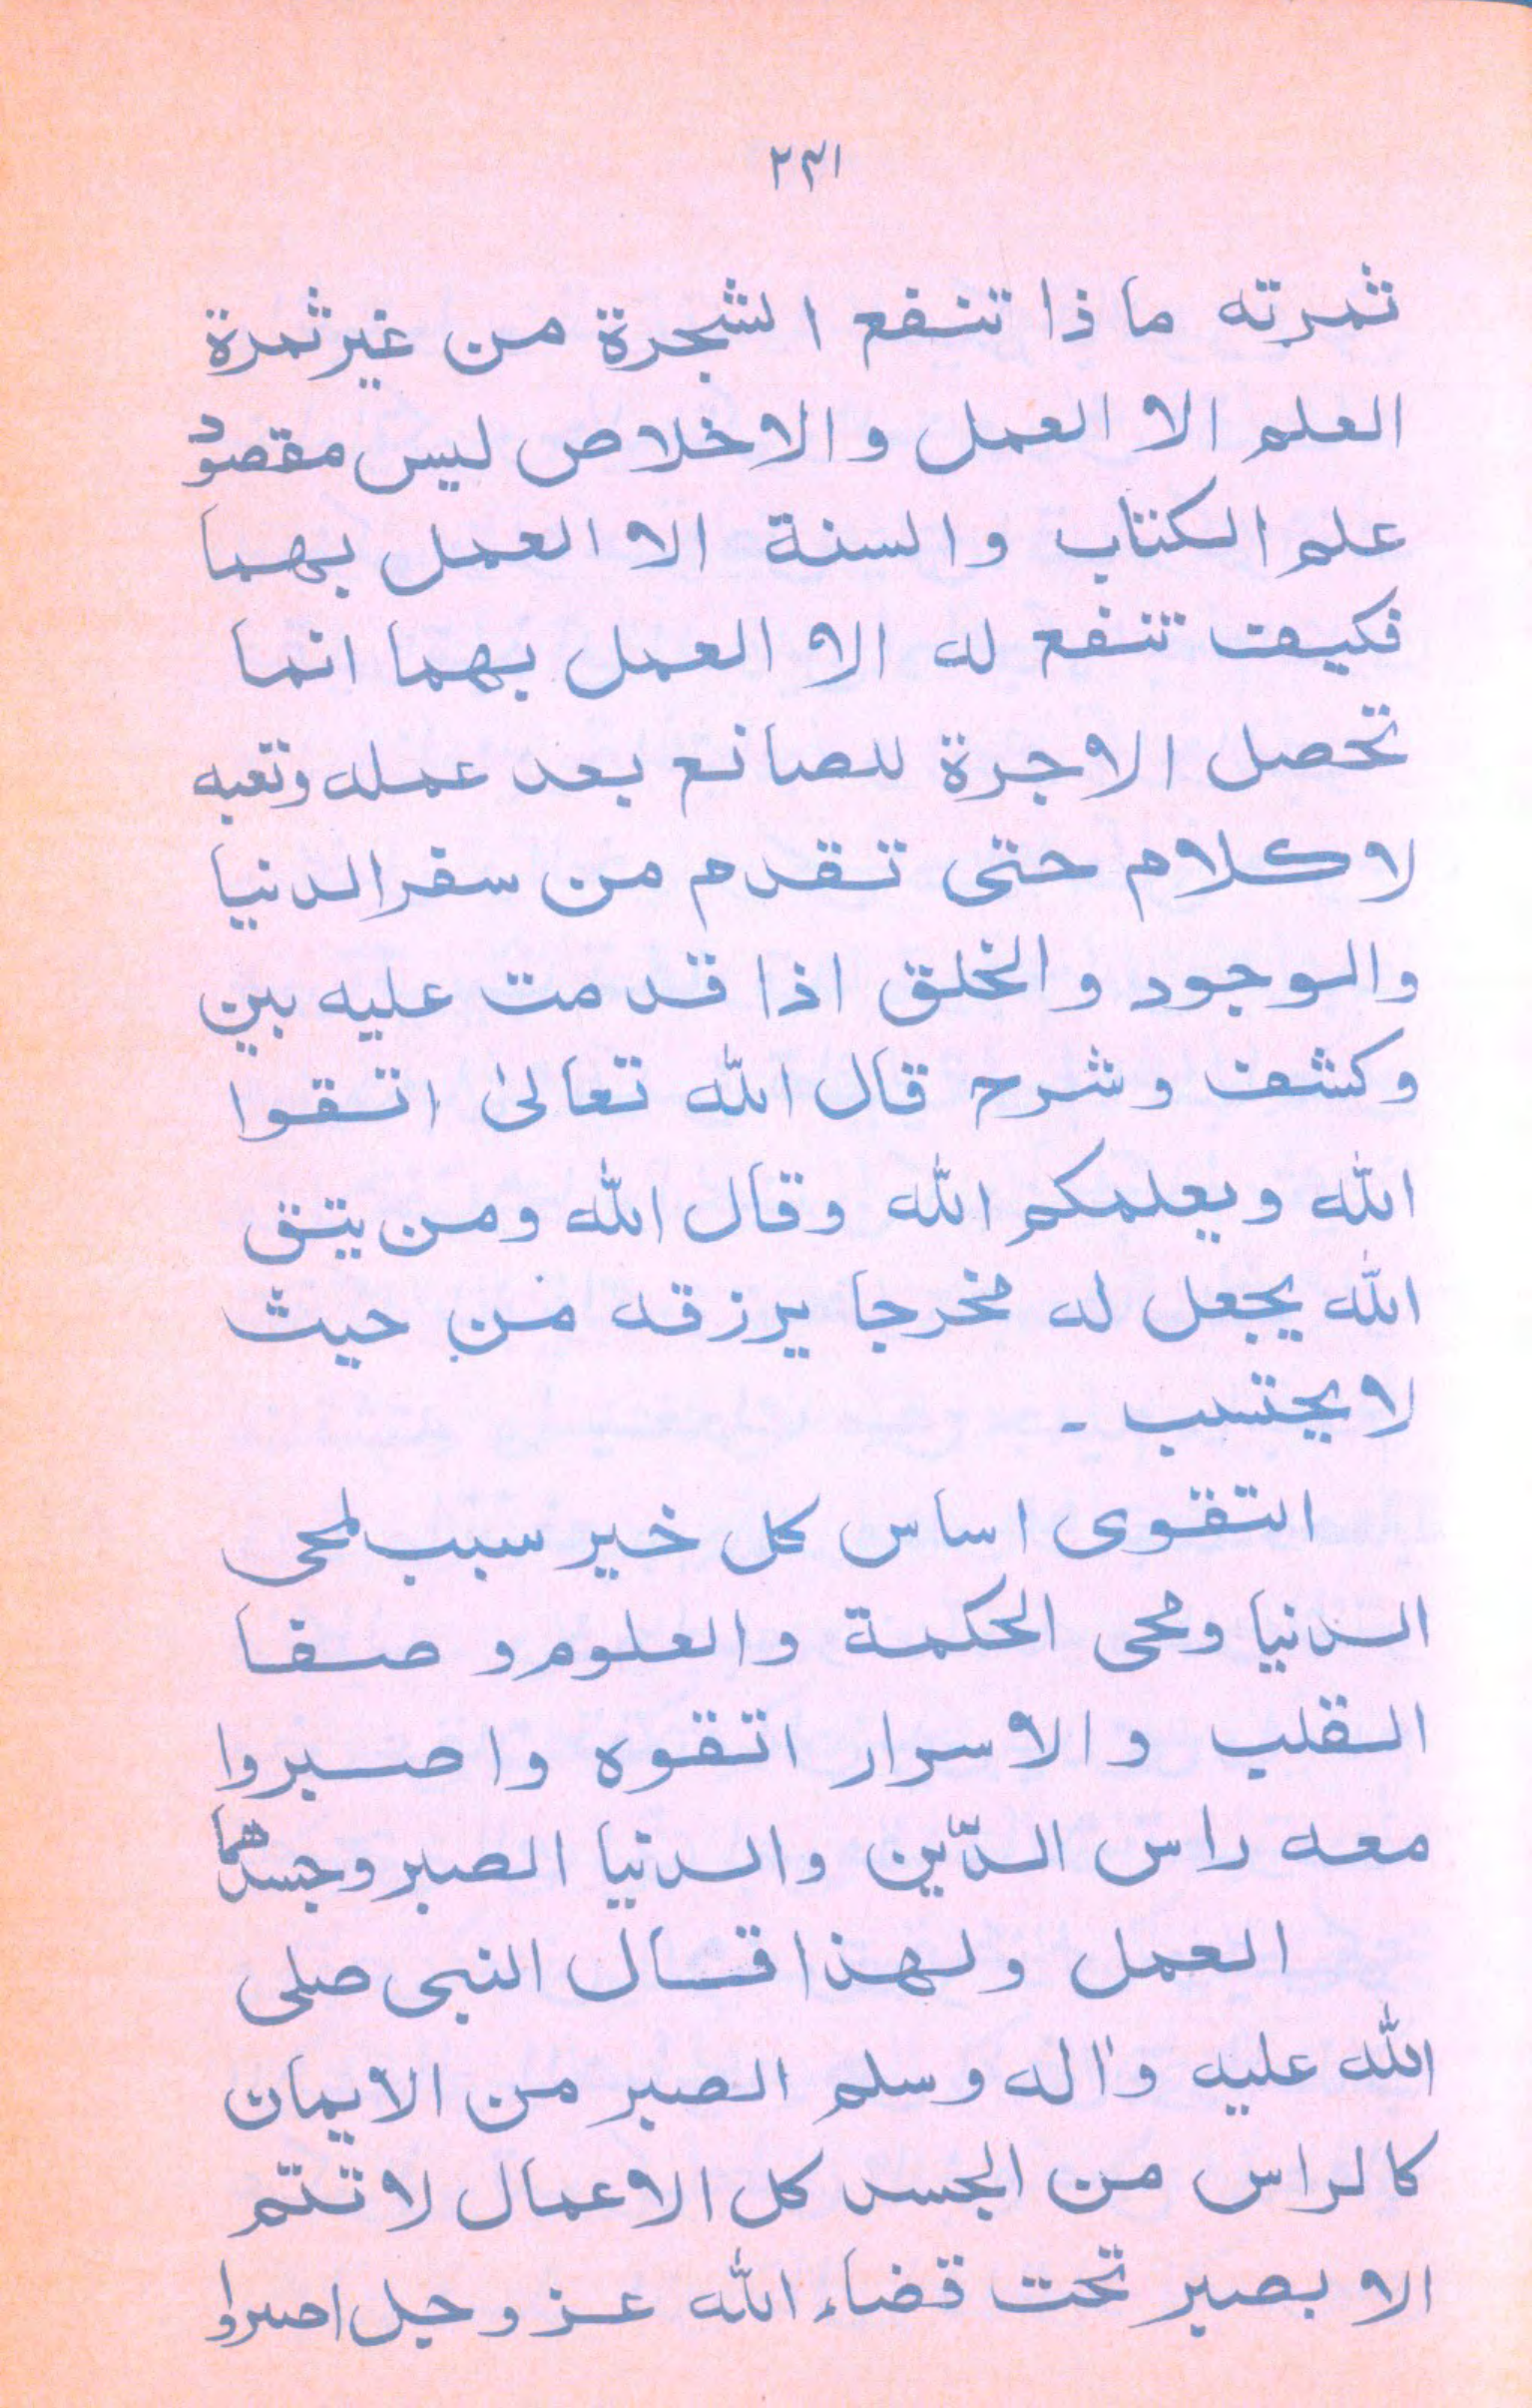 ٢٣١
ثمرته ما ذا تنفع الشجرة من غير ثمرة
العلم الا العمل والاخلاص ليس مقصود
علم الكتاب والسنة الا العمل بهما
فكيف تنفع له الا العمل بهما انما
تحصل الاجرة للصانع بعد عمله وتعبه
لا كلام حتى تقدم من سفر الدنيا
والوجود والخلق اذا قدمت عليه بين
وكشف وشرح قال الله تعالىٰ اتقوا
الله ويعلمكم الله وقال الله ومن يتق
الله يجعل له مخرجا يرزقه من حيث
لا يحتسب ـ
التقوى اساس كل خير سبب لمحى
الدنيا ومحى الحكمة والعلوم وصفا
القلب والاسرار اتقوه واصبروا
معه راس الدّين والدنيا الصبر وجسدهما
العمل ولهذا قال النبى صلى
الله عليه واٰله وسلم الصبر من الايمان
كالراس من الجسد كل الاعمال لا تتم
الا بصبر تحت قضاء الله عز وجل اصبروا